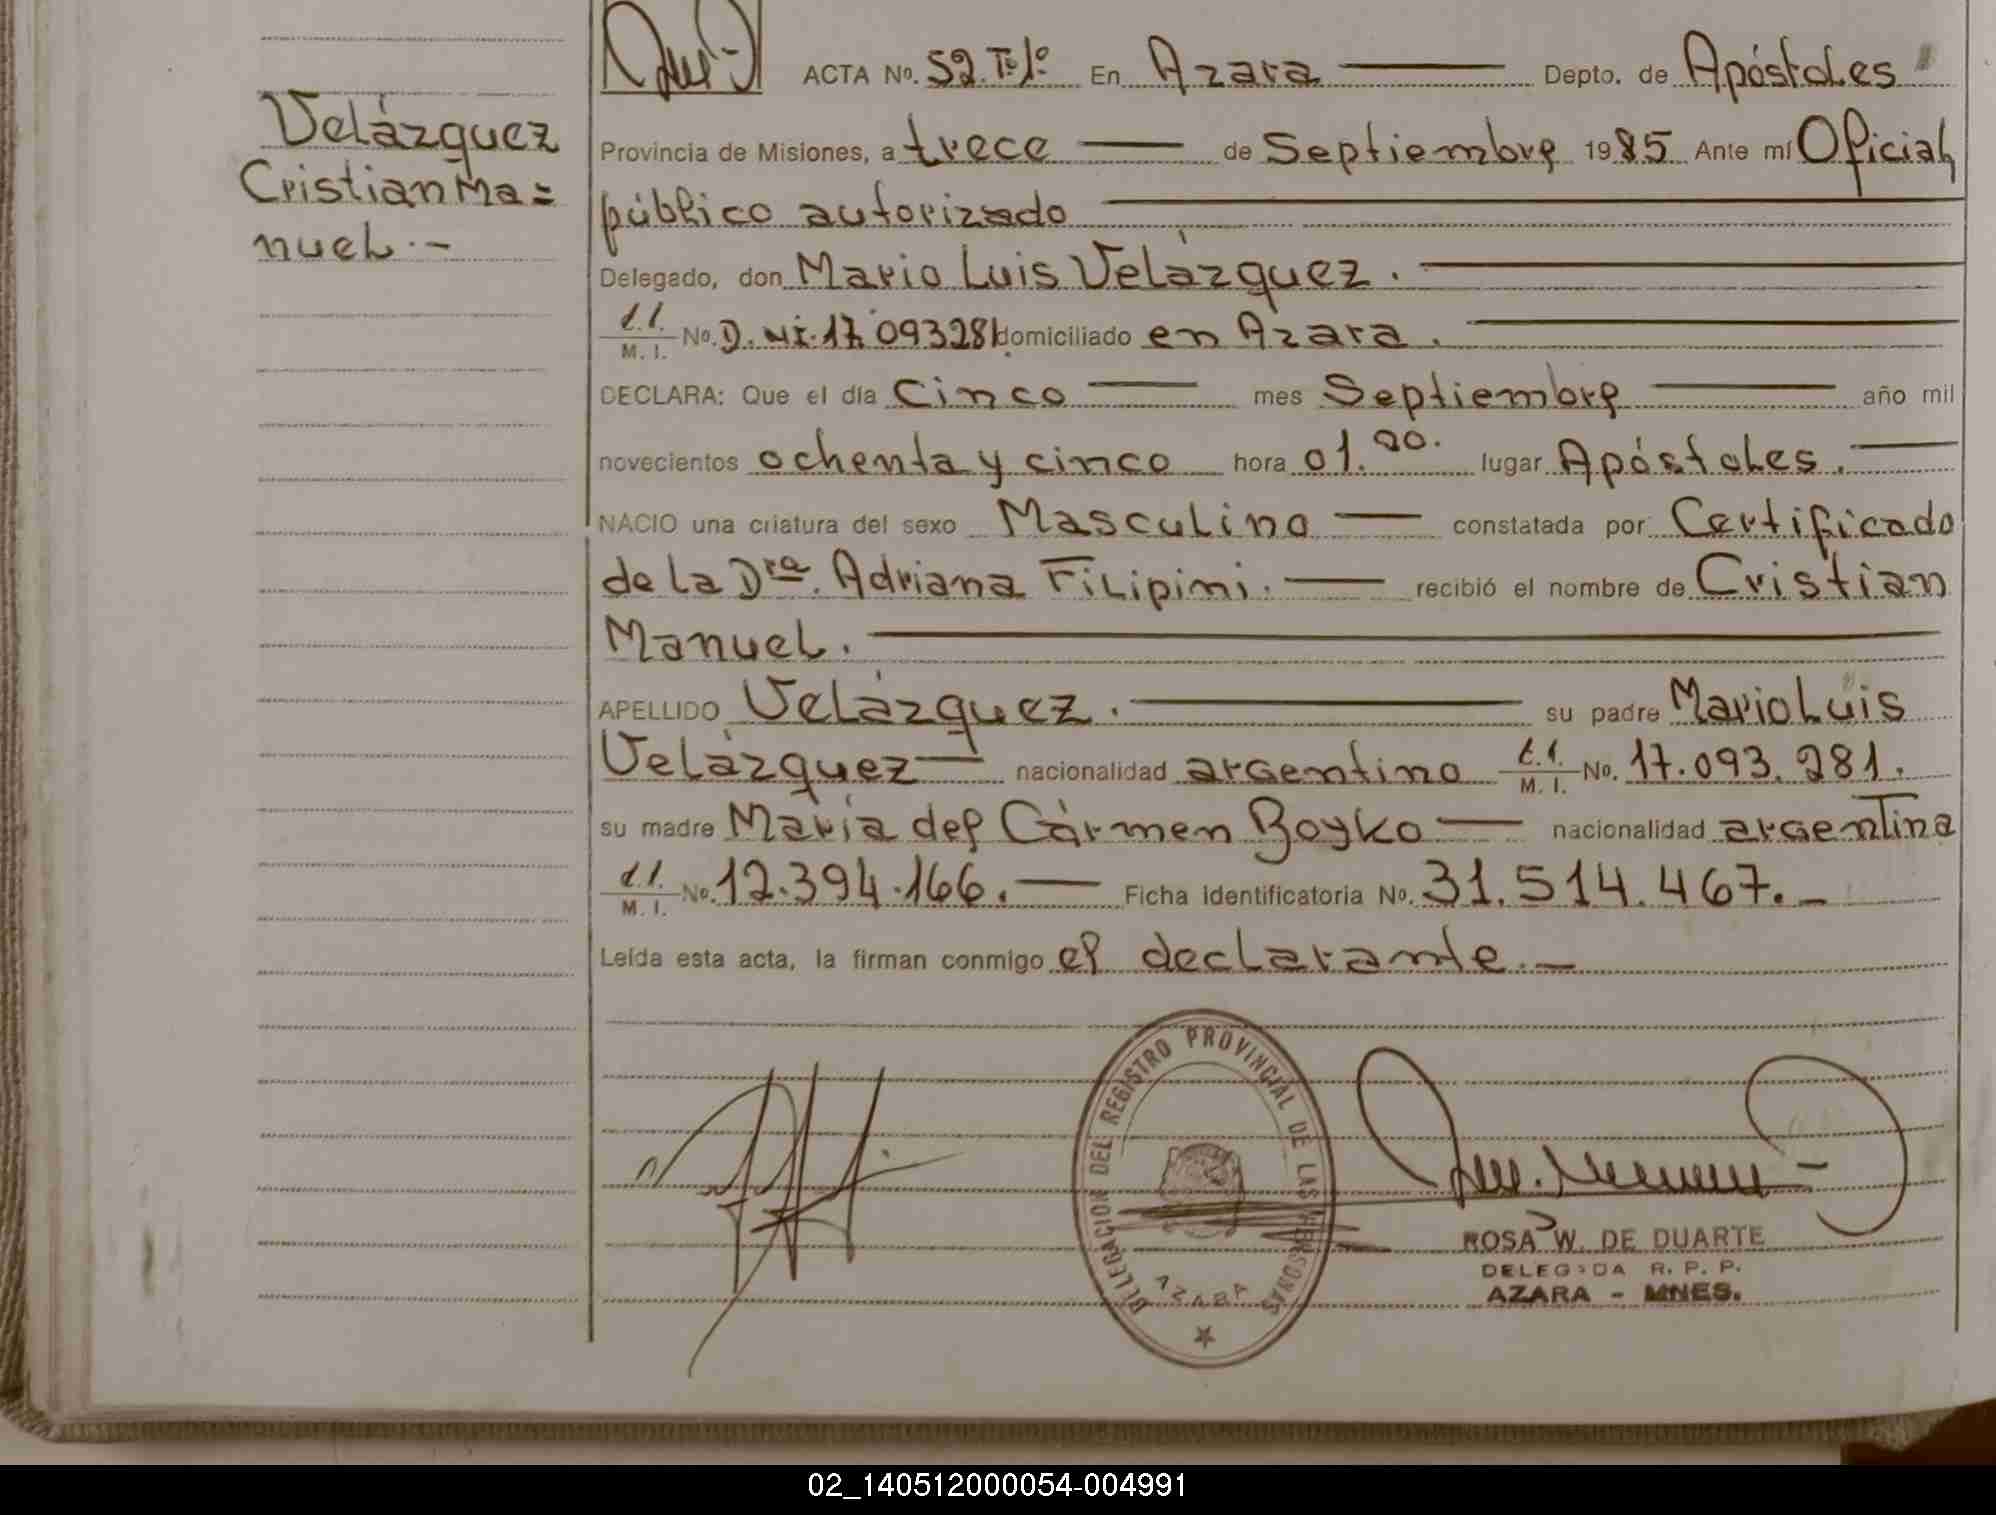 Velázquez
Cristian Ma=
nuel.-
ACTA No. 52.Tº1º En Azara Depto. de Apóstoles
Provincia de Misiones, a trece de Septiembre 1985 Ante mí Oficial
público autorizado
Delegado, don Mario Luis Velázquez.
C.I. M. I. No. D.NI.17.093281 domiciliado en Azara.
DECLARA: Que el día Cinco mes Septiembre año mil
novecientos ochenta y cinco hora 01.20. lugar Apóstoles.
NACIO una criatura del sexo Masculino constatada por Certificado
de la Dra. Adriana Filipini. recibió el nombre de Cristian
Manuel.
APELLIDO Velázquez. su padre Mario Luis
Velázquez nacionalidad argentino C.I. M. I. No. 17.093.281.
su madre María del Cármen Boyko nacionalidad argentina
C.I. M. I. No. 12.394.166. Ficha identificatoria No. 31.514.467.-
Leída esta acta, la firman conmigo el declarante.-
DELEGACION DEL REGISTRO PROVINCIAL DE LAS PERSONAS
AZARA
ROSA W. DE DUARTE
DELEGADA R. P. P.
AZARA - MNES.
02_140512000054-004991